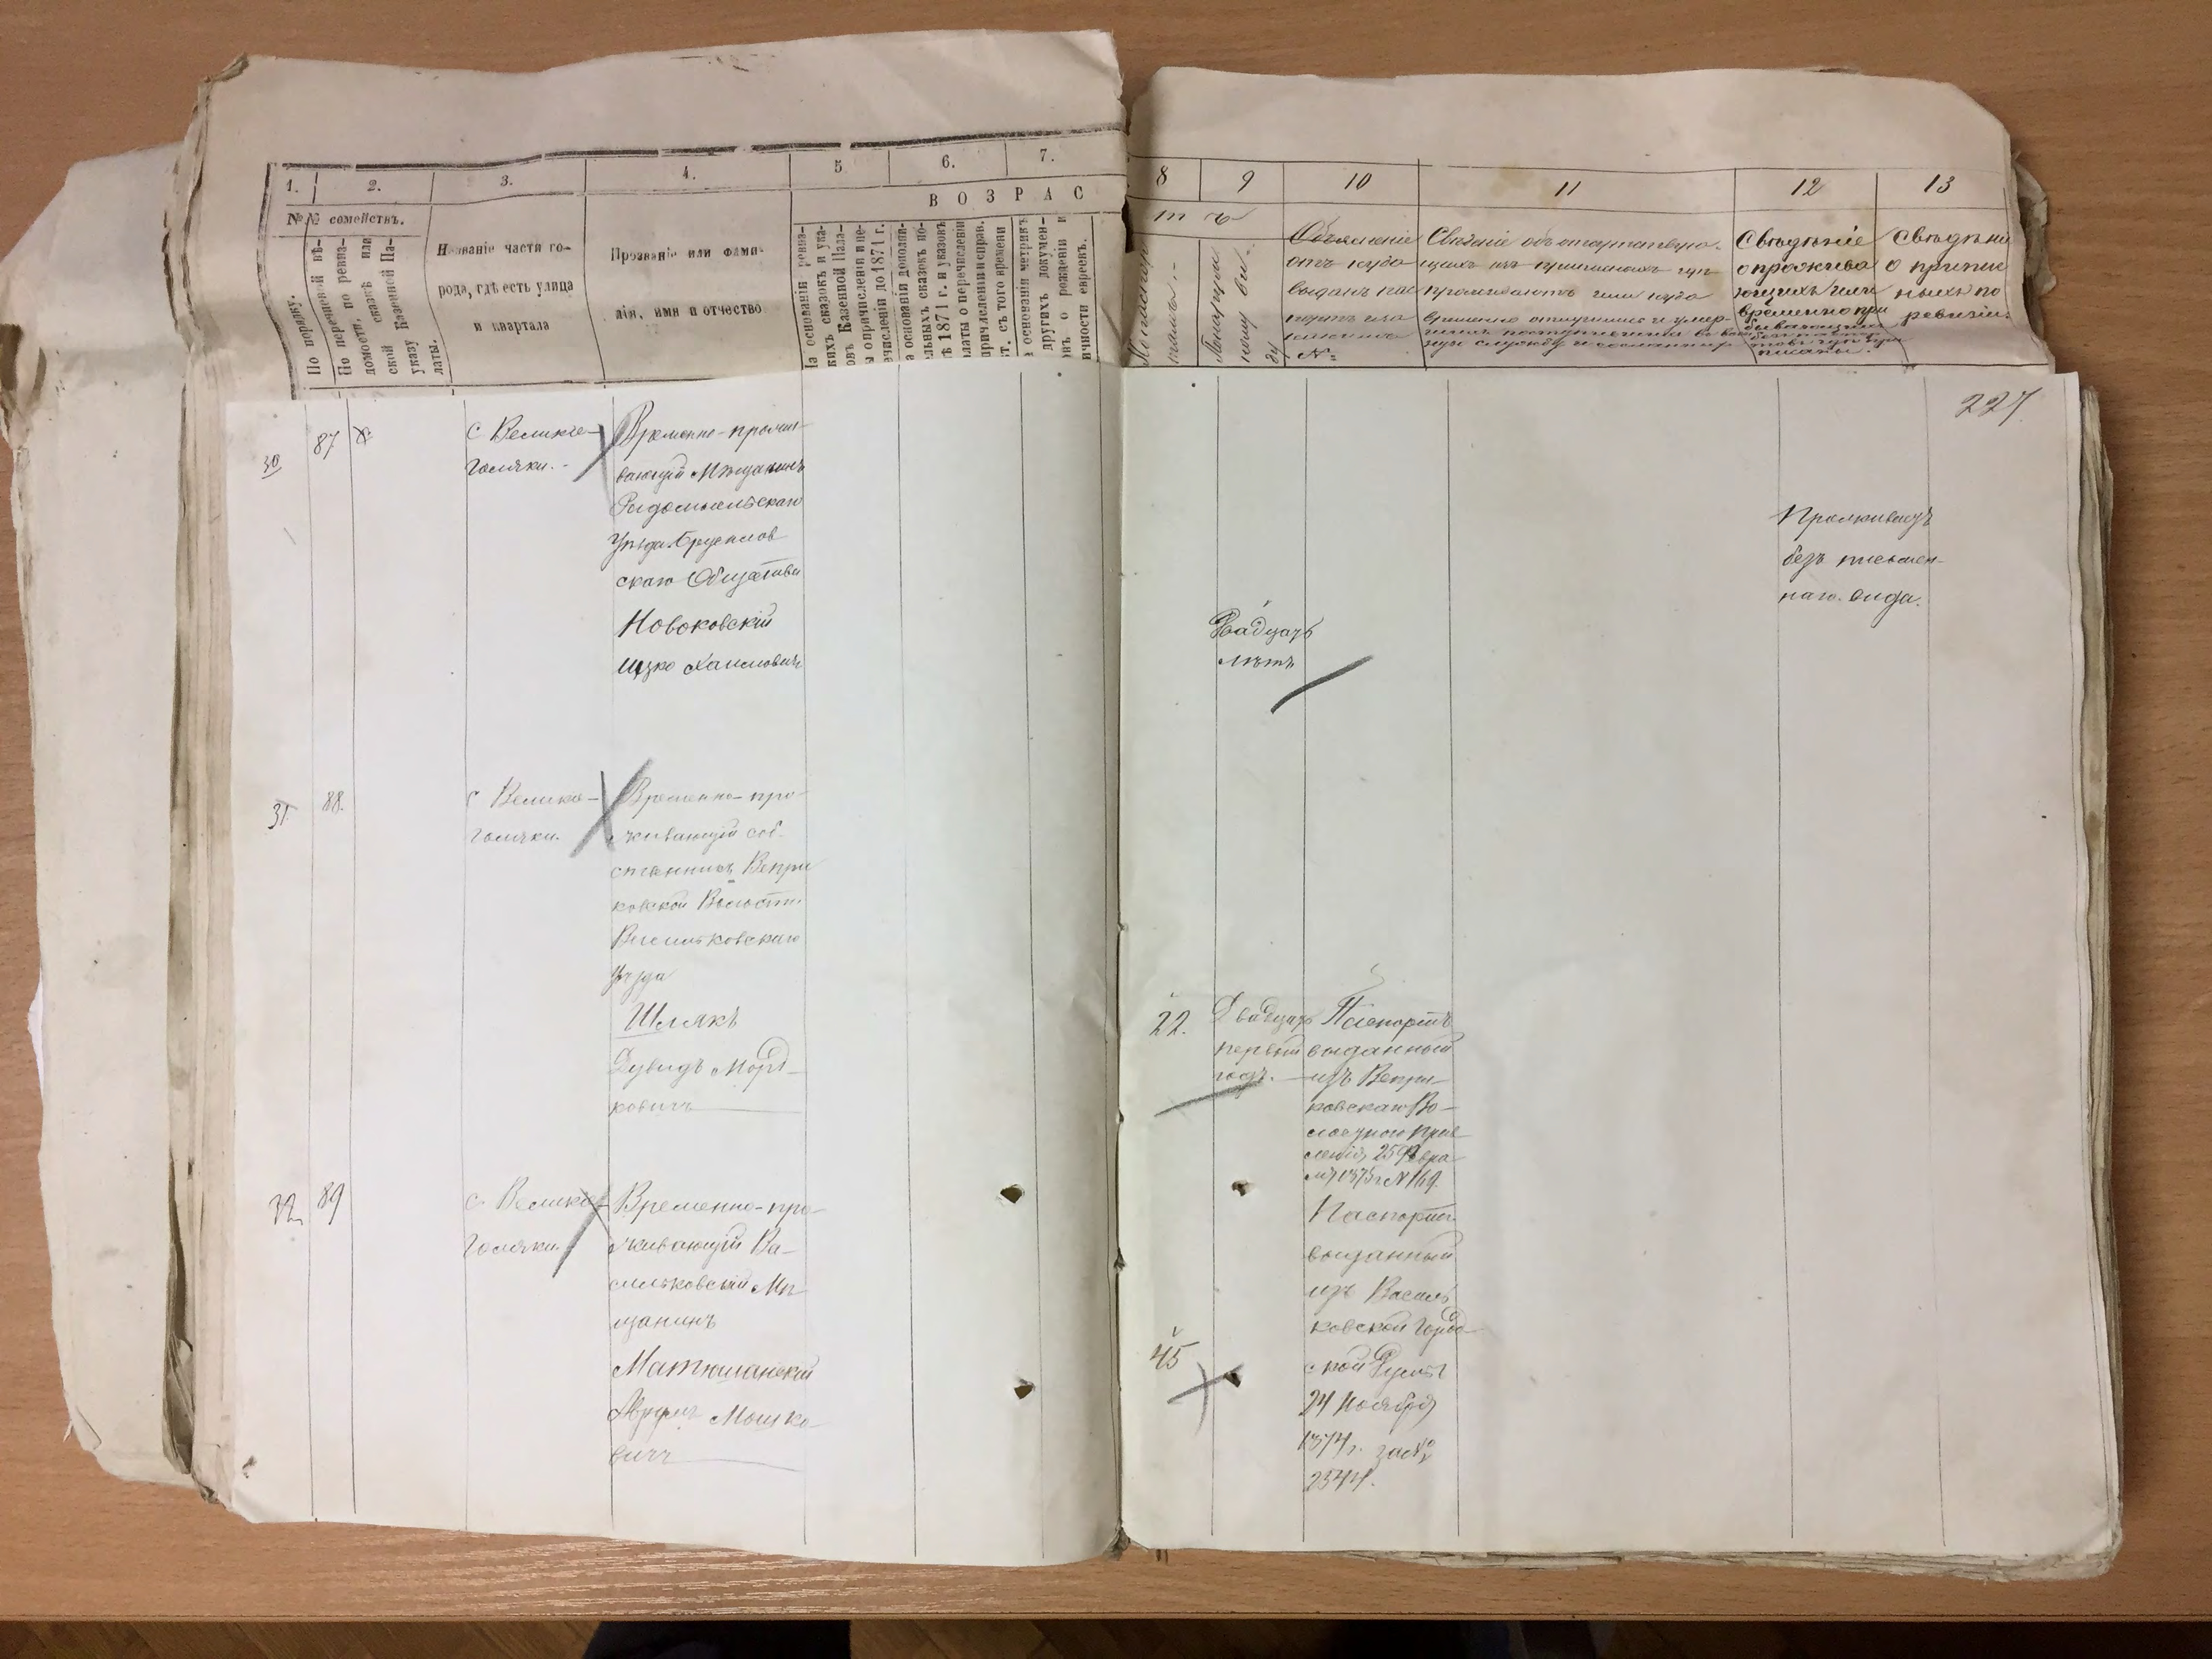 1. 2. 3. 4. 5 6. 7.
8 9 10 11 12 13
В О З Р А С
т ъ
№№ семействъ.
По порядку.
По перечневой вѣ-
домости, по ревиз-
ской сказкѣ или
указу Казенной Па-
латы.
Названіе части го-
рода, гдѣ есть улица
и квартала
Прозваніе или фами-
лія, имя и отчество
На основаніи ревиз-
кихъ сказокъ и ука-
овъ Казенной Пала-
ы о причисленіи и пе-
ечисленіи до 1871 г.
а основаніи дополни-
ельныхъ сказокъ по-
ѣ 1871 г. и указовъ
алаты о перечисленіи
причисленіи и исправ.
т. съ того времени
основаніи метрикъ
другихъ докумен-
овъ о рожденіи и
ичности евреевъ.
Объясненіе
отъ куда
выданъ пас
портъ или
№:
Свѣденіе объ отсутствую-
Свѣдѣніе
о прожива
ющихъ или
временно при
Свѣдѣни
о припис
ныхъ по
ревизіи.
227
30
87
с Велике-
голяки.-
Временно-прожи-
вающій Мѣщанинъ
Радомысльскаго
Уѣзда Брусилов
скаго Общества
Новоковскій
Ицко Хаимовичъ
Двадцать
лѣтъ
Проживаетъ
безъ письмен-
наго. вида.
31
88.
с Велико-
голяки.
Временно-про-
живающій соб-
ственникъ Вепри
ковской Волости
Васильковскаго
Уѣзда
Шлякъ
Дувидъ Морд-
ковичъ
22.
Двадцать
первый
годъ.
Паспортъ
выданный
изъ Вепри-
ковскаго Во-
лостнаго Прав-
ленія, 25 Февра
ля 1875 г № 169.
32
89
с. Велико-
голяки.
Временно-про-
живающій Ва-
сильковскій Мѣ
щанинъ
Матюшанскій
Мошко-
вичъ
45
Паспортъ
выданный
изъ Василь
ковской Город-
ской Думы
24 Ноября
1874 г. за №
2544.